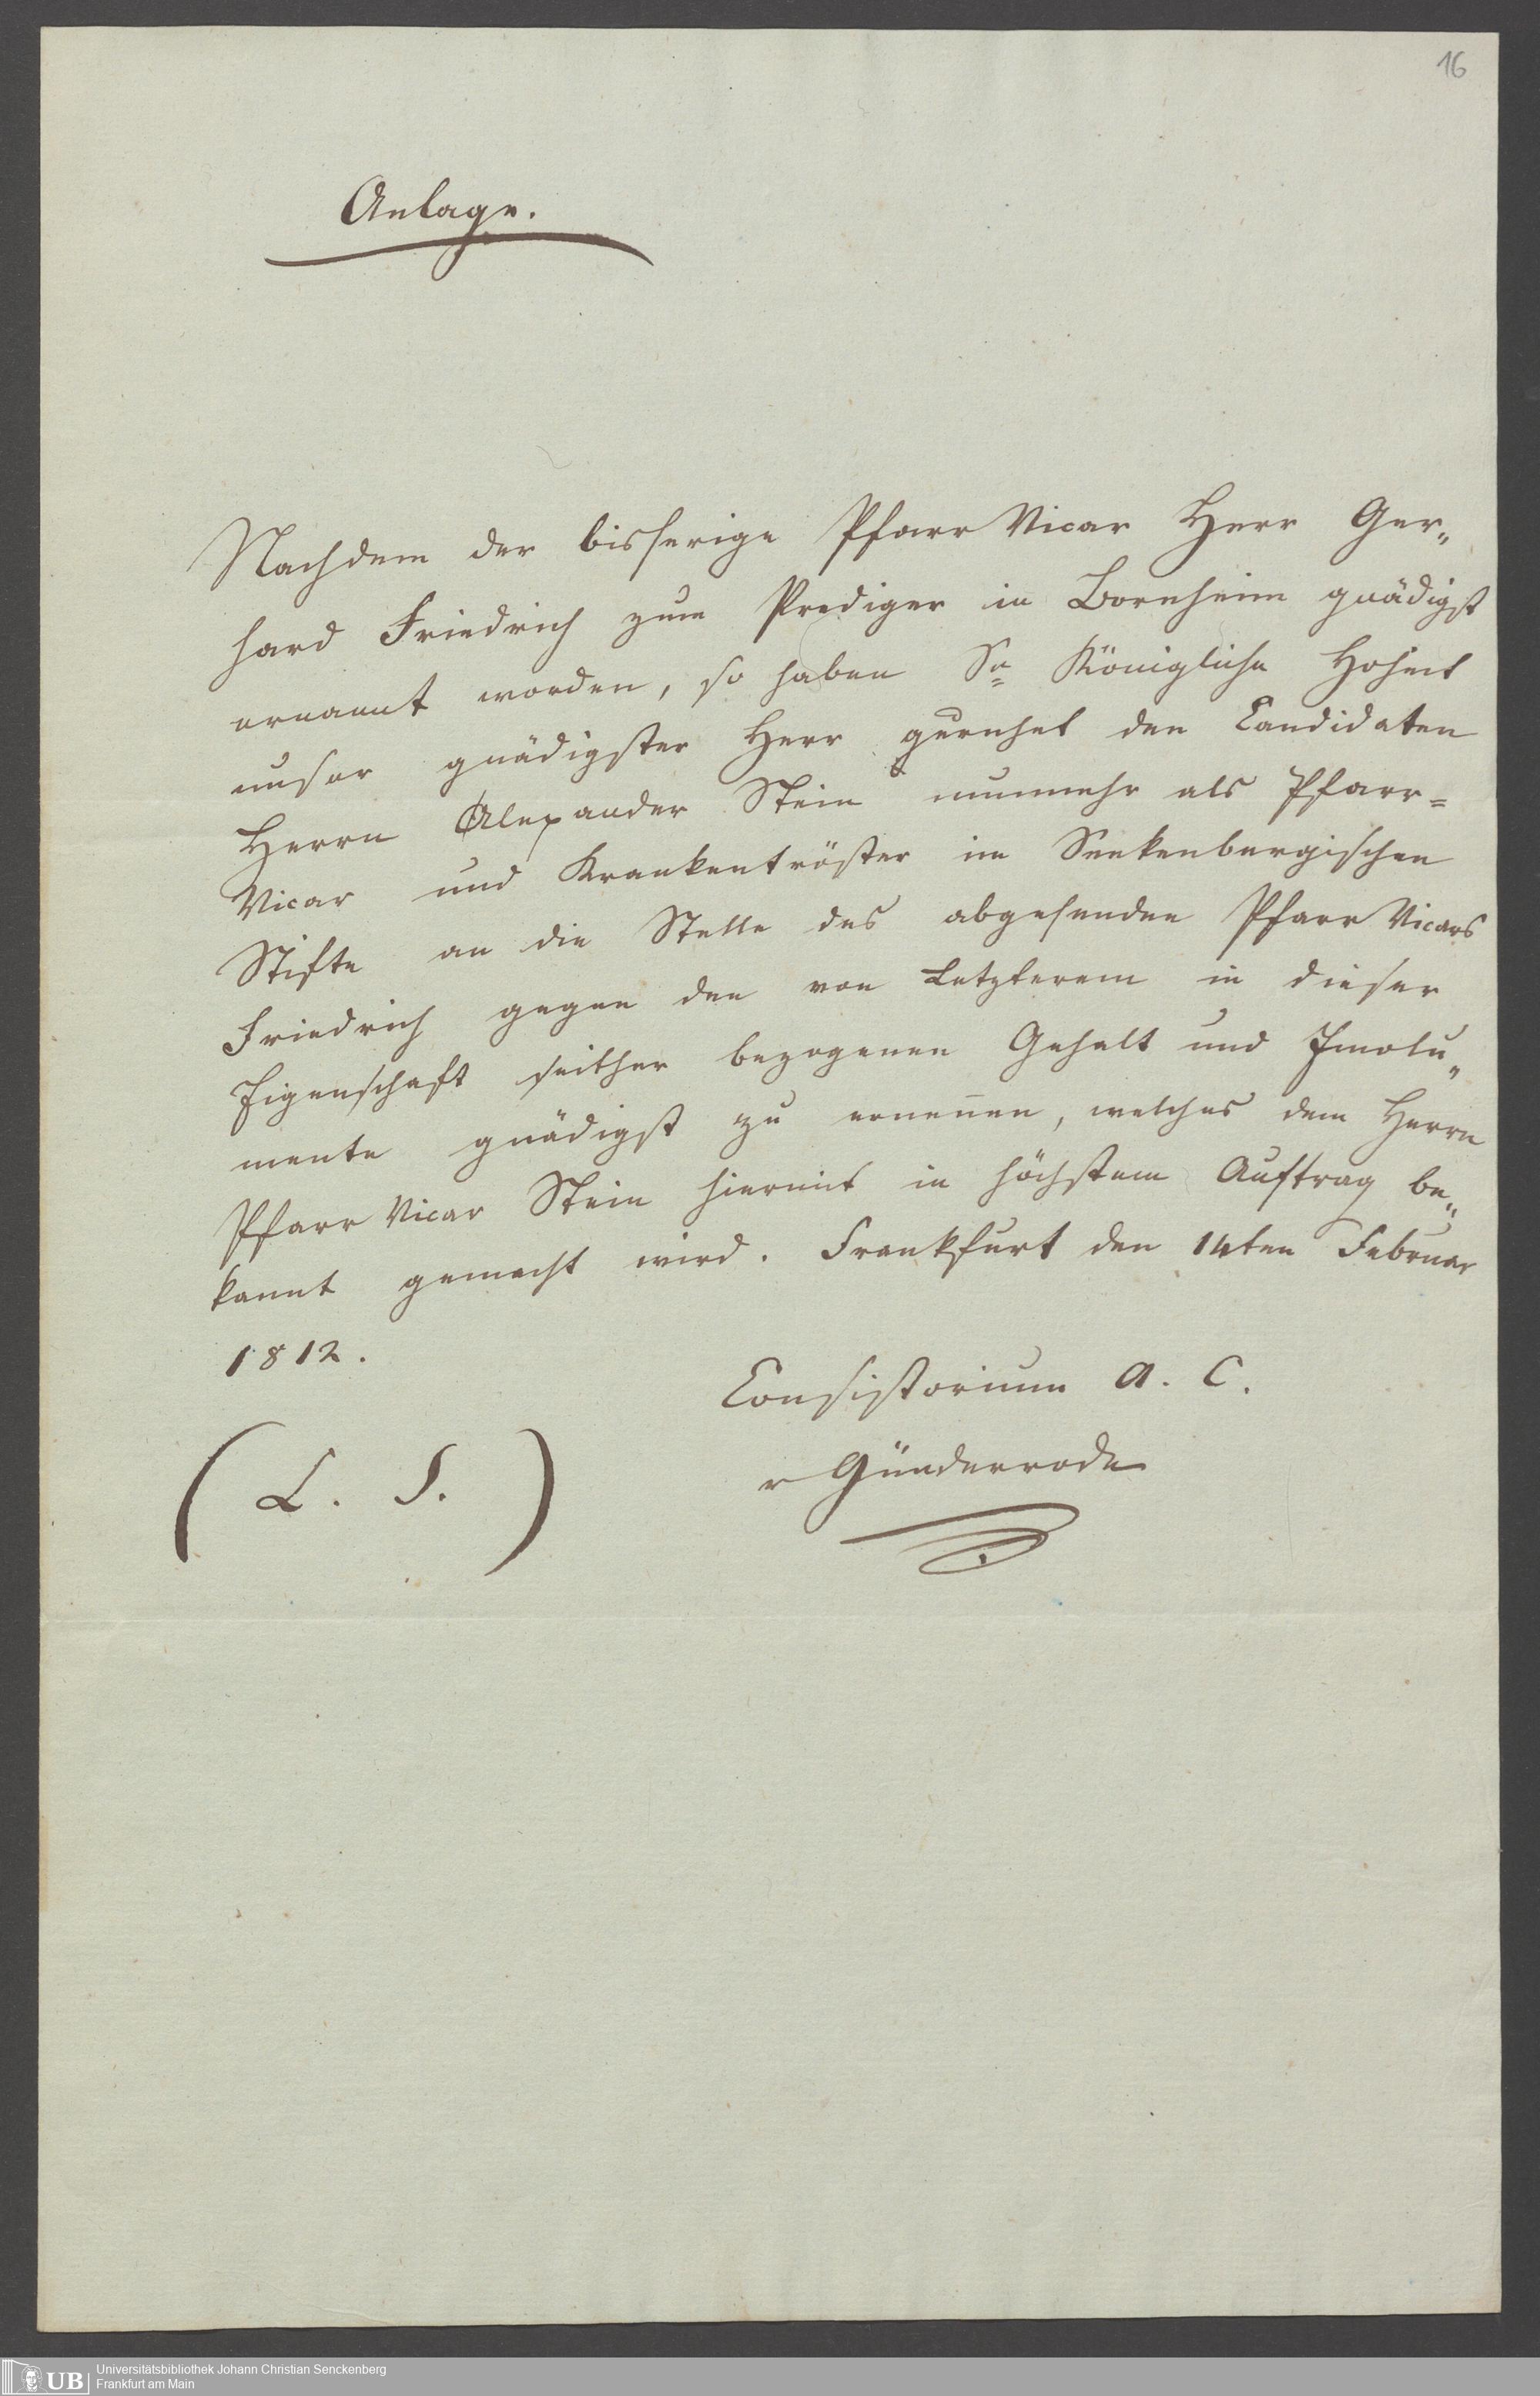 16
Anlage.
Nachdem der bisherige Pfarr Vicar Herr Ger„
hard Friedrich zum Prediger in Bornheim gnädigst
ernannt worden, so haben Se Königliche Hoheit
unser gnädigster Herr geruhet den Candidaten
Herrn Alexander Stein nunmehr als Pfarr=
Vicar und Krankentröster im Senkenbergischen
Stifte an die Stelle des abgehenden Pfarr Vicars
Friedrich gegen den von Letzterem in dieser
Eigenschaft seither bezogenen Gehalt und Emolu„
mente gnädigst zu ernennen, welches dem Herrn
Pfarr Vicar Stein hiermit in höchstem Auftrag be„
kannt gemacht wird. Frankfurt den 14ten Februar
1812.
Consistorium A. C.
v Günderrode
( L. S. )
UB Universitätsbibliothek Johann Christian Senckenberg
Frankfurt am Main